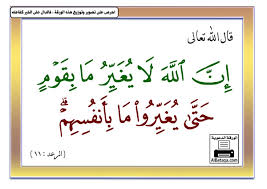 احرص على تصوير وتوزيع هذه الورقة .. فالدال على الخير كفاعله
قال الله تعالى
إِنَّ ٱللَّهَ لَا يُغَيِّرُ مَا بِقَوْمٍ
حَتَّىٰ يُغَيِّرُوا۟ مَا بِأَنفُسِهِمْ ۗ
( الرعد : ١١ )
الورقة الدعوية
Albetaqa.com